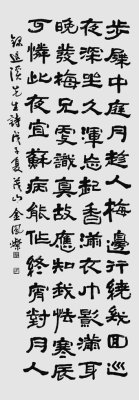 步屧中庭月趁人梅邊行繞幾回巡
夜深坐久渾忘起香滿衣巾影滿身
晩發梅兄更識眞故應知我怯寒辰
可憐此夜宜蘇病能作終宵對月人
錄退溪先生詩戊子夏茂山金